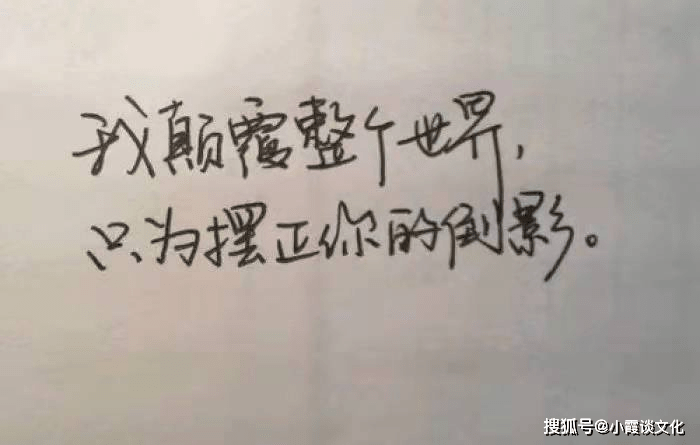 我颠覆整个世界，
只为摆正你的倒影。
搜狐号@小霞谈文化